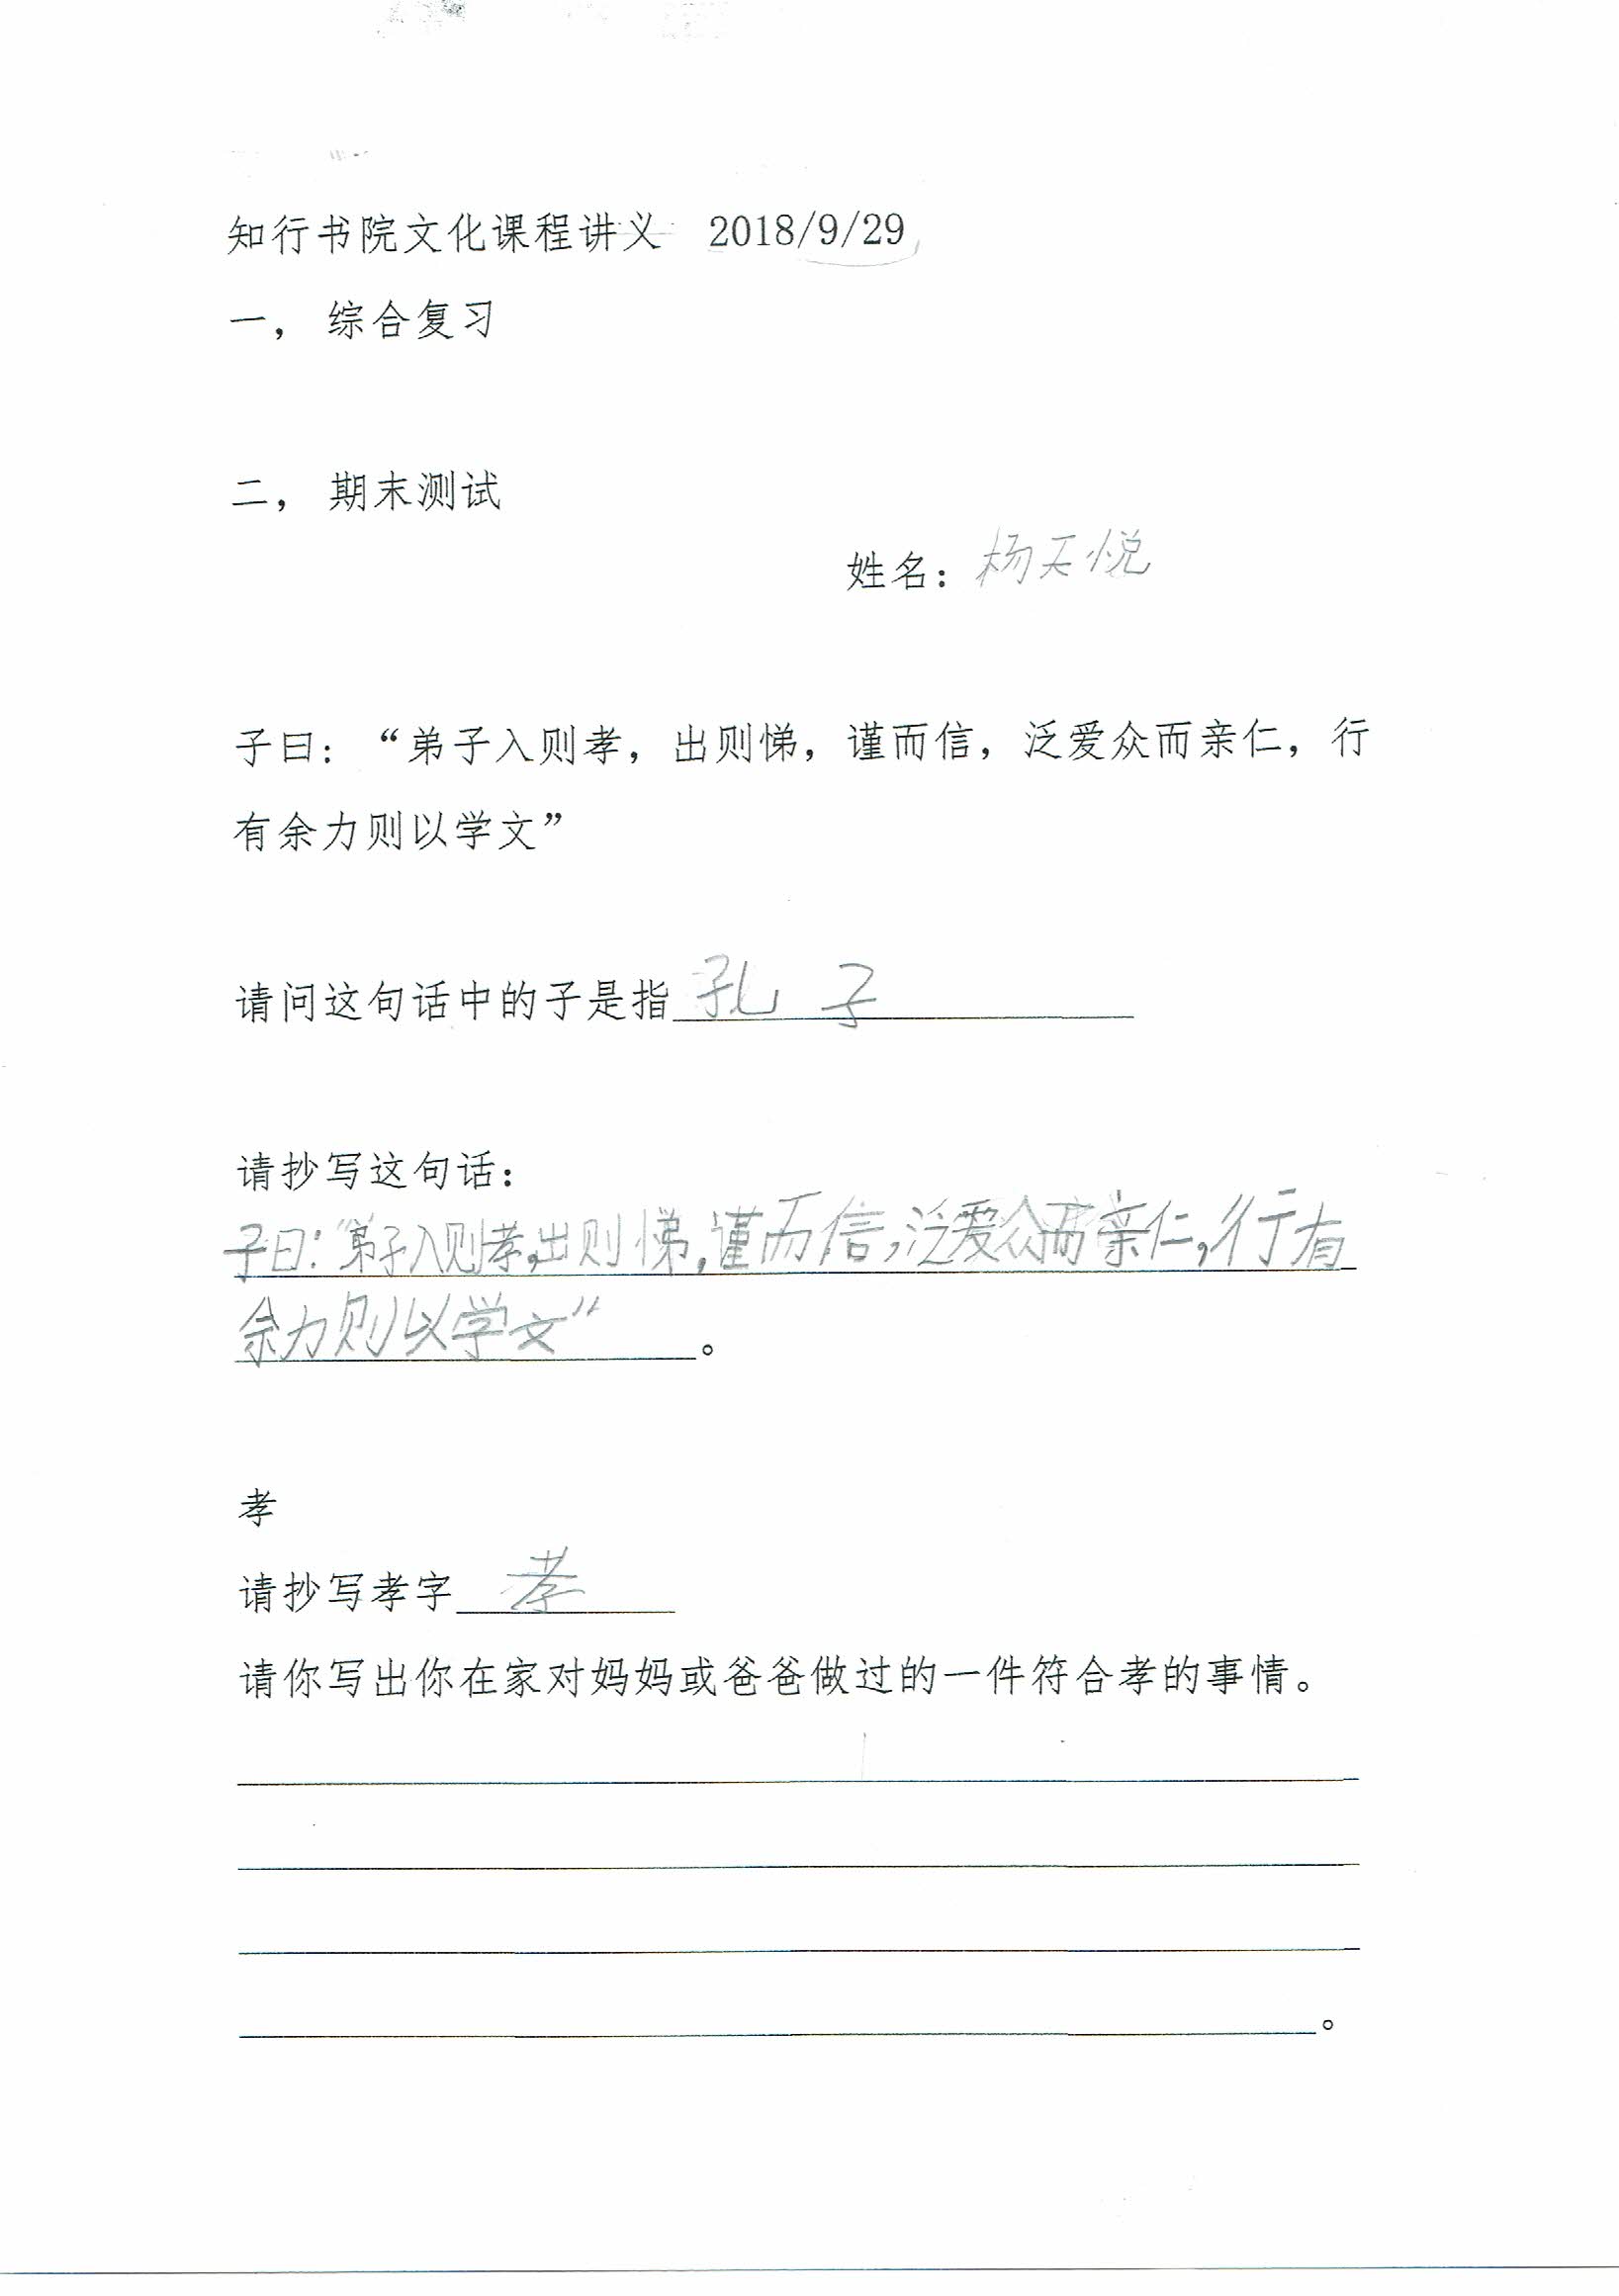 知行书院文化课程讲义 2018/9/29
一， 综合复习
二， 期末测试
姓名：杨天悦
子曰：“弟子入则孝，出则悌，谨而信，泛爱众而亲仁，行
有余力则以学文”
请问这句话中的子是指孔子
请抄写这句话：
子曰：“弟子入则孝，出则悌，谨而信，泛爱众而亲仁，行有
余力则以学文”。
孝
请抄写孝字孝
请你写出你在家对妈妈或爸爸做过的一件符合孝的事情。